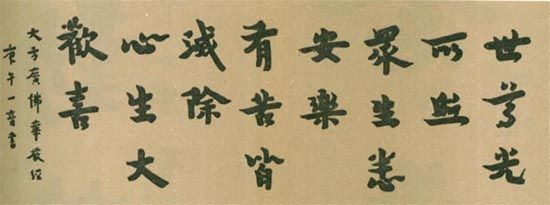 世尊光
所照
眾生悉
安樂
有苦皆
滅除
心生大
歡喜
大方廣佛華嚴經
庚午一音書